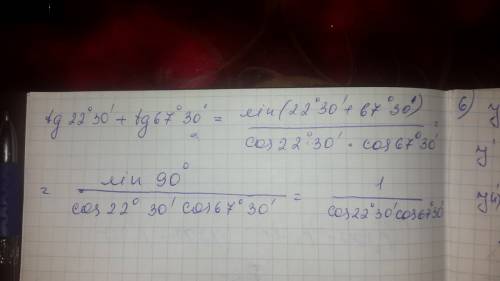 tg 22°30' + tg 67°30' = sin(22°30' + 67°30') / cos 22°30' · cos 67°30' =
= sin 90° / cos 22°30' cos 67°30' = 1 / cos 22°30' cos 67°30'
б)
y
y'
y'